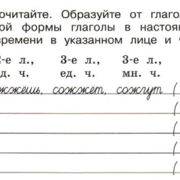 рочитайте. Образуйте от глагол
ной формы глаголы в настоя
времени в указанном лице и ч
2-е л., 3-е л., 3-е л.,
ед. ч. ед. ч. мн. ч.
жжёшь, сожжёт, сожгут (
(
(
(
(